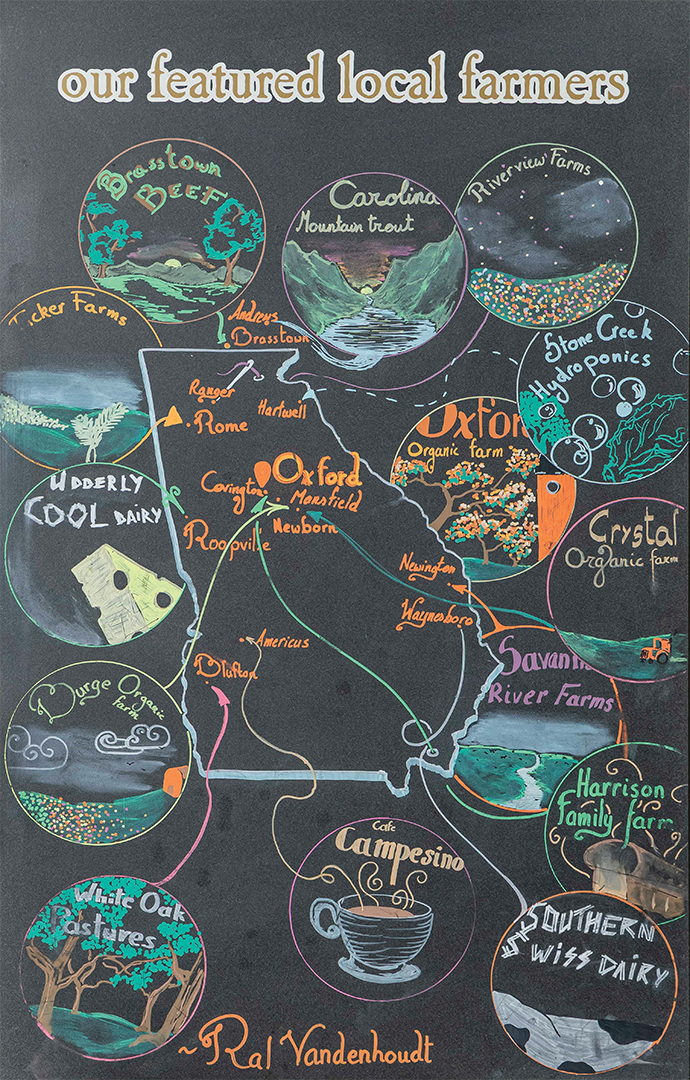 our featured local farmers
Brasstown
BEEF
Carolina
Mountain trout
Riverview Farms
Andrews
Brasstown
Farms
Stone Creek
Hydroponics
Ranger
Rome
Hartwell
Oxford
Organic farm
UDDERLY
COOL DAIRY
Covington
Oxford
Mansfield
Newborn
Roopville
Crystal
Organic farm
Newington
Waynesboro
Americus
Blufton
River Farms
Burge Organic
farm
Harrison
Family farm
Cafe
Campesino
White Oak
Pastures
SOUTHERN
SWISS DAIRY
~Ral Vandenhoudt